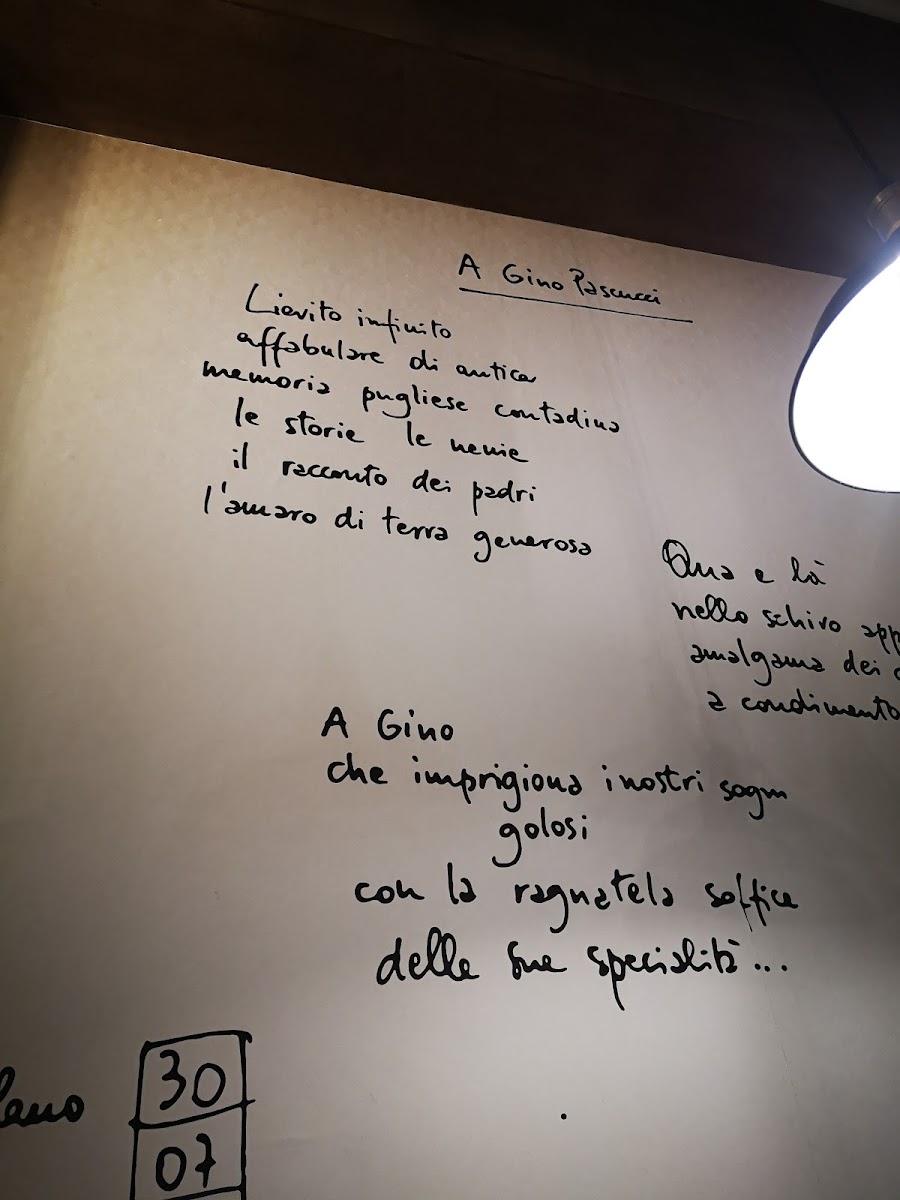 A Gino Pascucci
Lievito infinito
affabulare di antica
memoria pugliese contadina
le storie le nenie
il racconto dei padri
l'amaro di terra generosa
Qua e là
nello schivo
amalgama dei
a condimento
A Gino
che imprigiona i nostri sogni
golosi
con la ragnatela soffice
delle sue specialità...
30
07